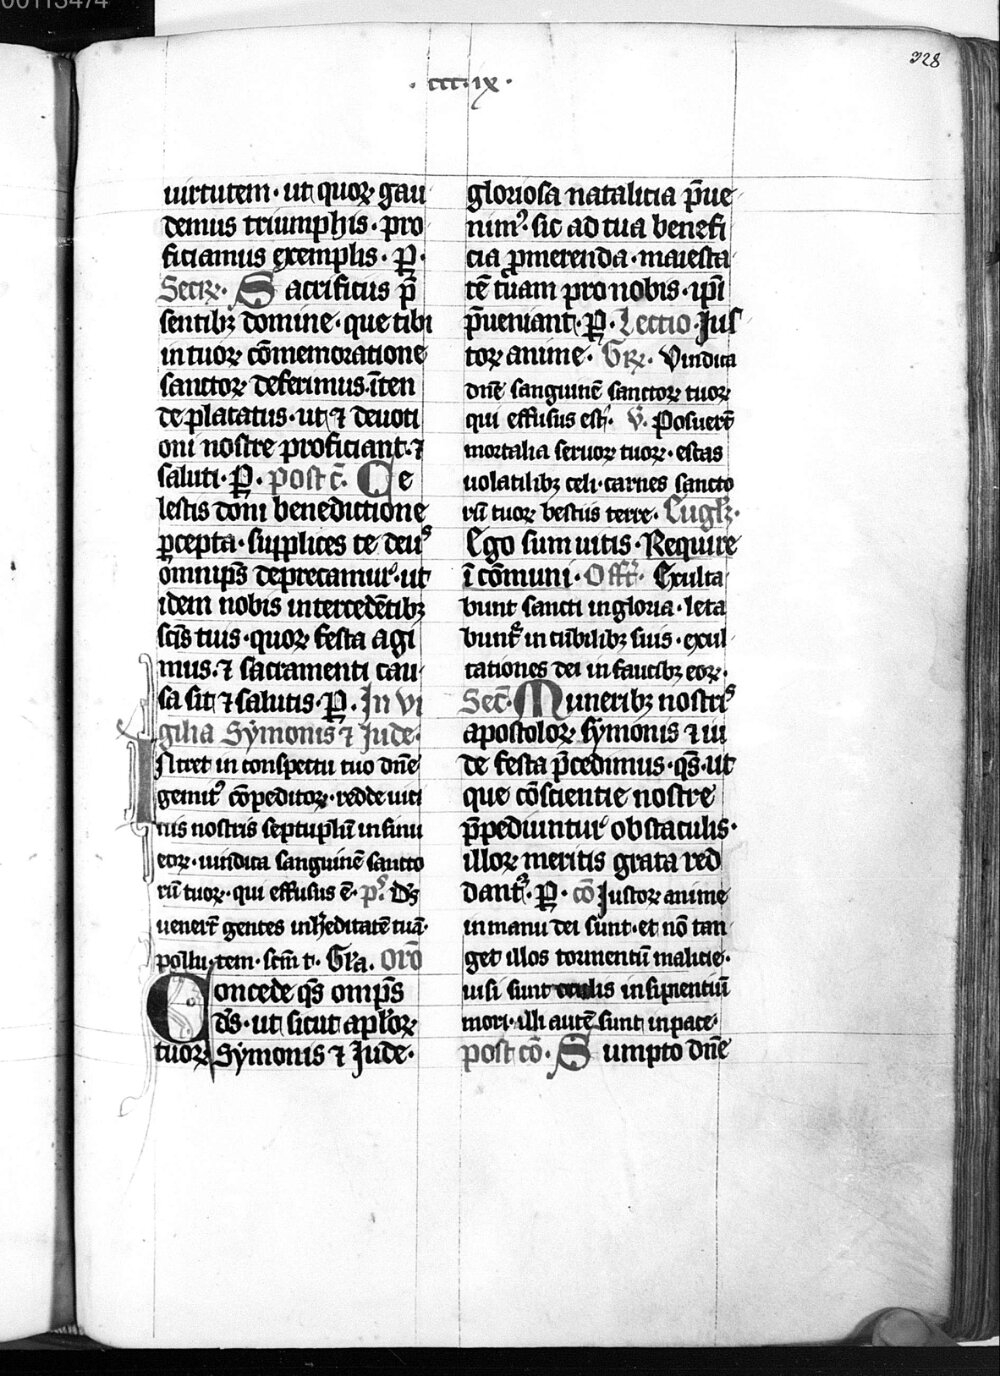 00113474
328
· ccc·ix ·
uirtutem · ut quoꝝ gau
demus triumphis · pro
ficiamus exemplis · P̲ ·
Secꝝ · Sacrificiis p̄
sentibꝫ domine · que tibi
in tuoꝝ cōmemoratione
sanctoꝝ deferimus · īten
de placatus · ut ⁊ deuoti
oni nostre proficiant · ⁊
saluti · P̲ · post c̄ · Ce
lestis doni benedictione
ꝑcepta · supplices te deus
omnip̄s deprecamur · ut
idem nobis intercedētibꝫ
sc̄is tuis · quoꝝ festa agi
mus · ⁊ sacramenti cau
sa sit ⁊ salutis · P̲ · In vi
gilia Symonis ⁊ Jude ·
Intret in conspectu tuo dn̄e
gemitꝰ cōpeditoꝝ · redde uici
nis nostris septuplū in sinu
eoꝝ · uindica sanguinē sancto
rū tuoꝝ · qui effusus ē · pꝰ · Ds̄
uenert̄ gentes in h̄editatē tuā ·
pollu · tem · sc̄m t · Gɫa · or̄o
Concede qs̄ omp̄s
ds̄ · ut sicut apl̄oꝝ
tuoꝝ Symonis ⁊ Jude ·
gloriosa natalicia p̄ue
nimꝰ · sic ad tua benefi
cia ꝓmerenda · maiesta
tē tuam pro nobis · ip̄i
p̄ueniant · P̲ · Lectio · Jus
toꝝ anime · Gꝝ · Vindica
dn̄e sanguinē sanctoꝝ tuoꝝ
qui effusus est · v̄ · Posuert̄
mortalia seruoꝝ tuoꝝ · escas
uolatilibꝫ celi · carnes sancto
rū tuoꝝ bestiis terre ·
Ego sum uitis · Require
ī cōmuni · Off̄ · Exulta
bunt sancti in gloria · leta
bunt̄ in cubilibꝫ suis · exul
tationes dei in faucibꝫ eoꝝ ·
Sec̄ · Muneribꝫ nostris
apostoloꝝ symonis ⁊ iu
de festa p̄cedimus · qs̄ · ut
que cōscientie nostre
p̄pediuntur obstaculis ·
illoꝝ meritis grata red
dant̄ · P̲ · cō Justoꝝ anime
in manu dei sunt · et nō tan
get illos tormentū malicie ·
uisi sunt oculis insipientiū
mori · illi autē sunt in pace ·
post cō · Sumpto dn̄e